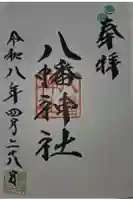 奉拝
八幡神社
令和八年四月二十八日